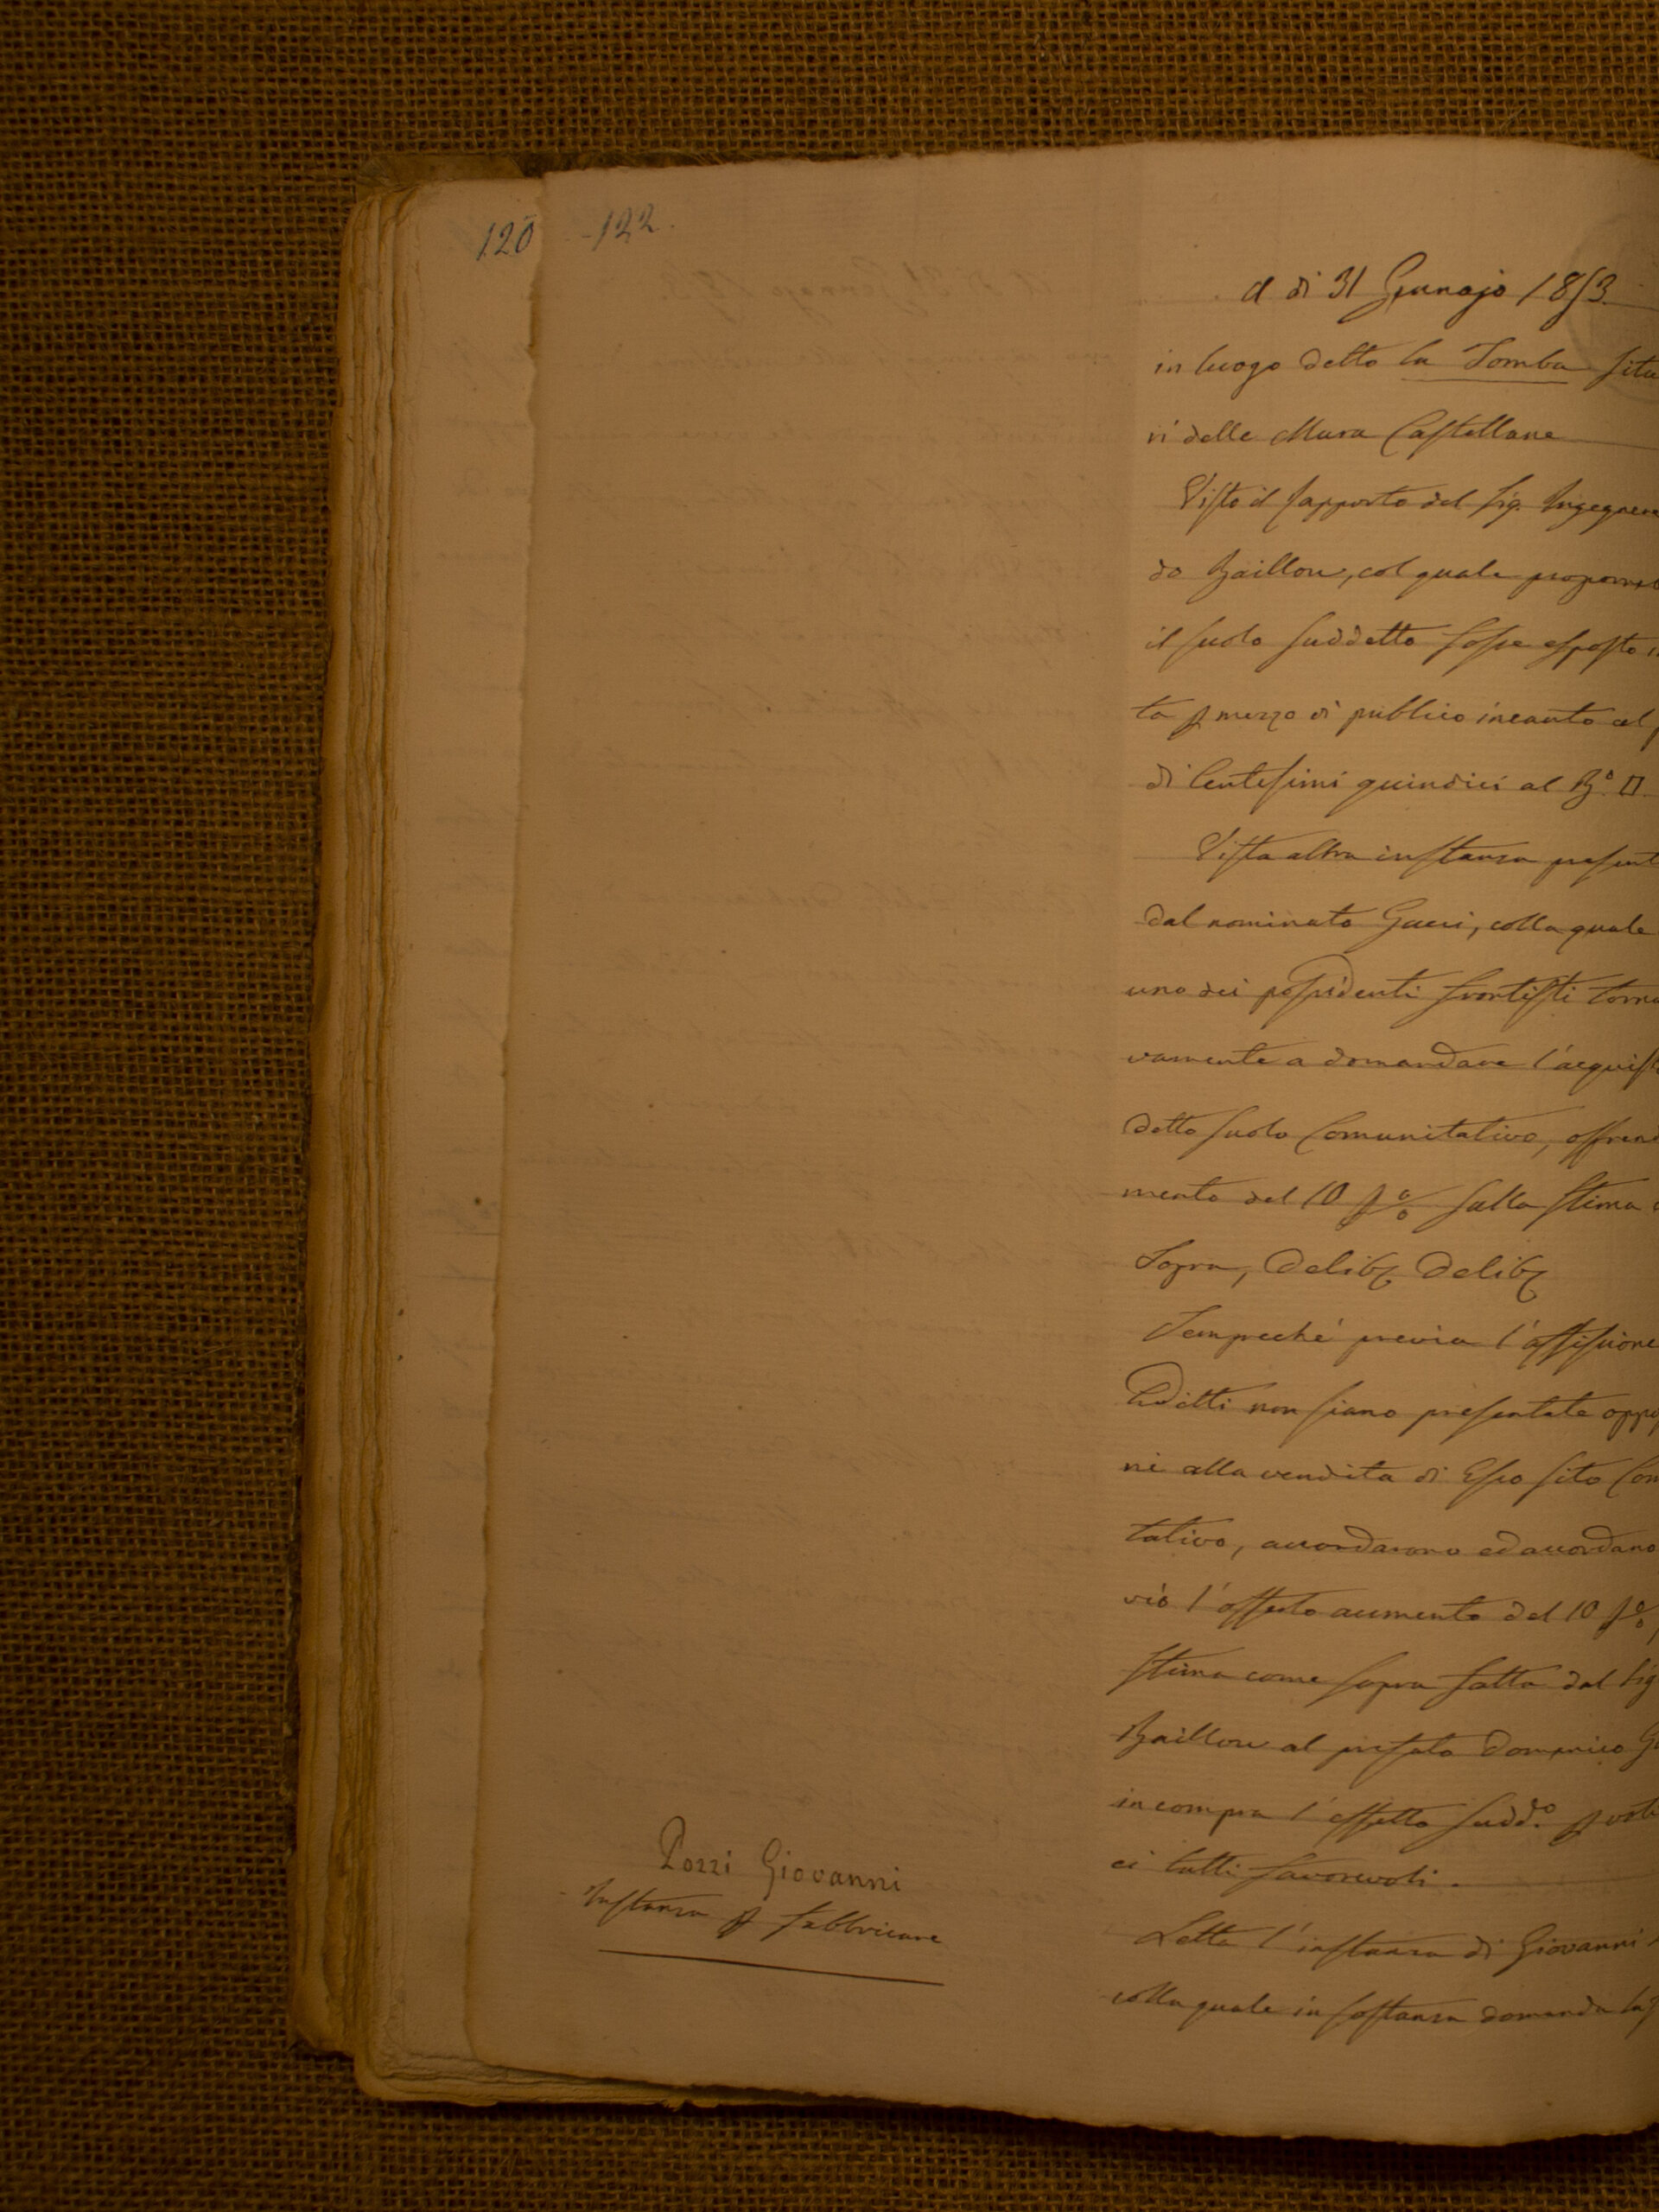 120 -122.
A dì 31 Gennajo 1853.
in luogo detto la Tomba situ
ri delle Mura Castellane
Visto il rapporto del Sig. Ingegnere
do Baillou, col quale proporreb
il suolo suddetto fosse esposto i
ta p mezzo di publico incanto al p
di Centesimi quindici al Bº. □.
Vista altra instanza present
dal nominato Gucci, colla quale
uno dei possidenti frontisti torna
vamente a domandare l'acquist
detto suolo Comunitativo, offren
mento del 10 p % sulla stima
Sopra, Delib Delib
Sempreché previa l'affissione
Editti non siano presentate oppo
ni alla vendita di Esso sito Com
tativo, accordarono ed accordano
viò l'offerto aumento del 10 p %
stima come sopra fatta dal Sig
Baillou al prefato Domenico G
in compra l'effetto sudd.º p voti
ci tutti favorevoli.
Pozzi Giovanni
Instanza p fabbricare
Letta l'instanza di Giovanni
colla quale in sostanza domanda la